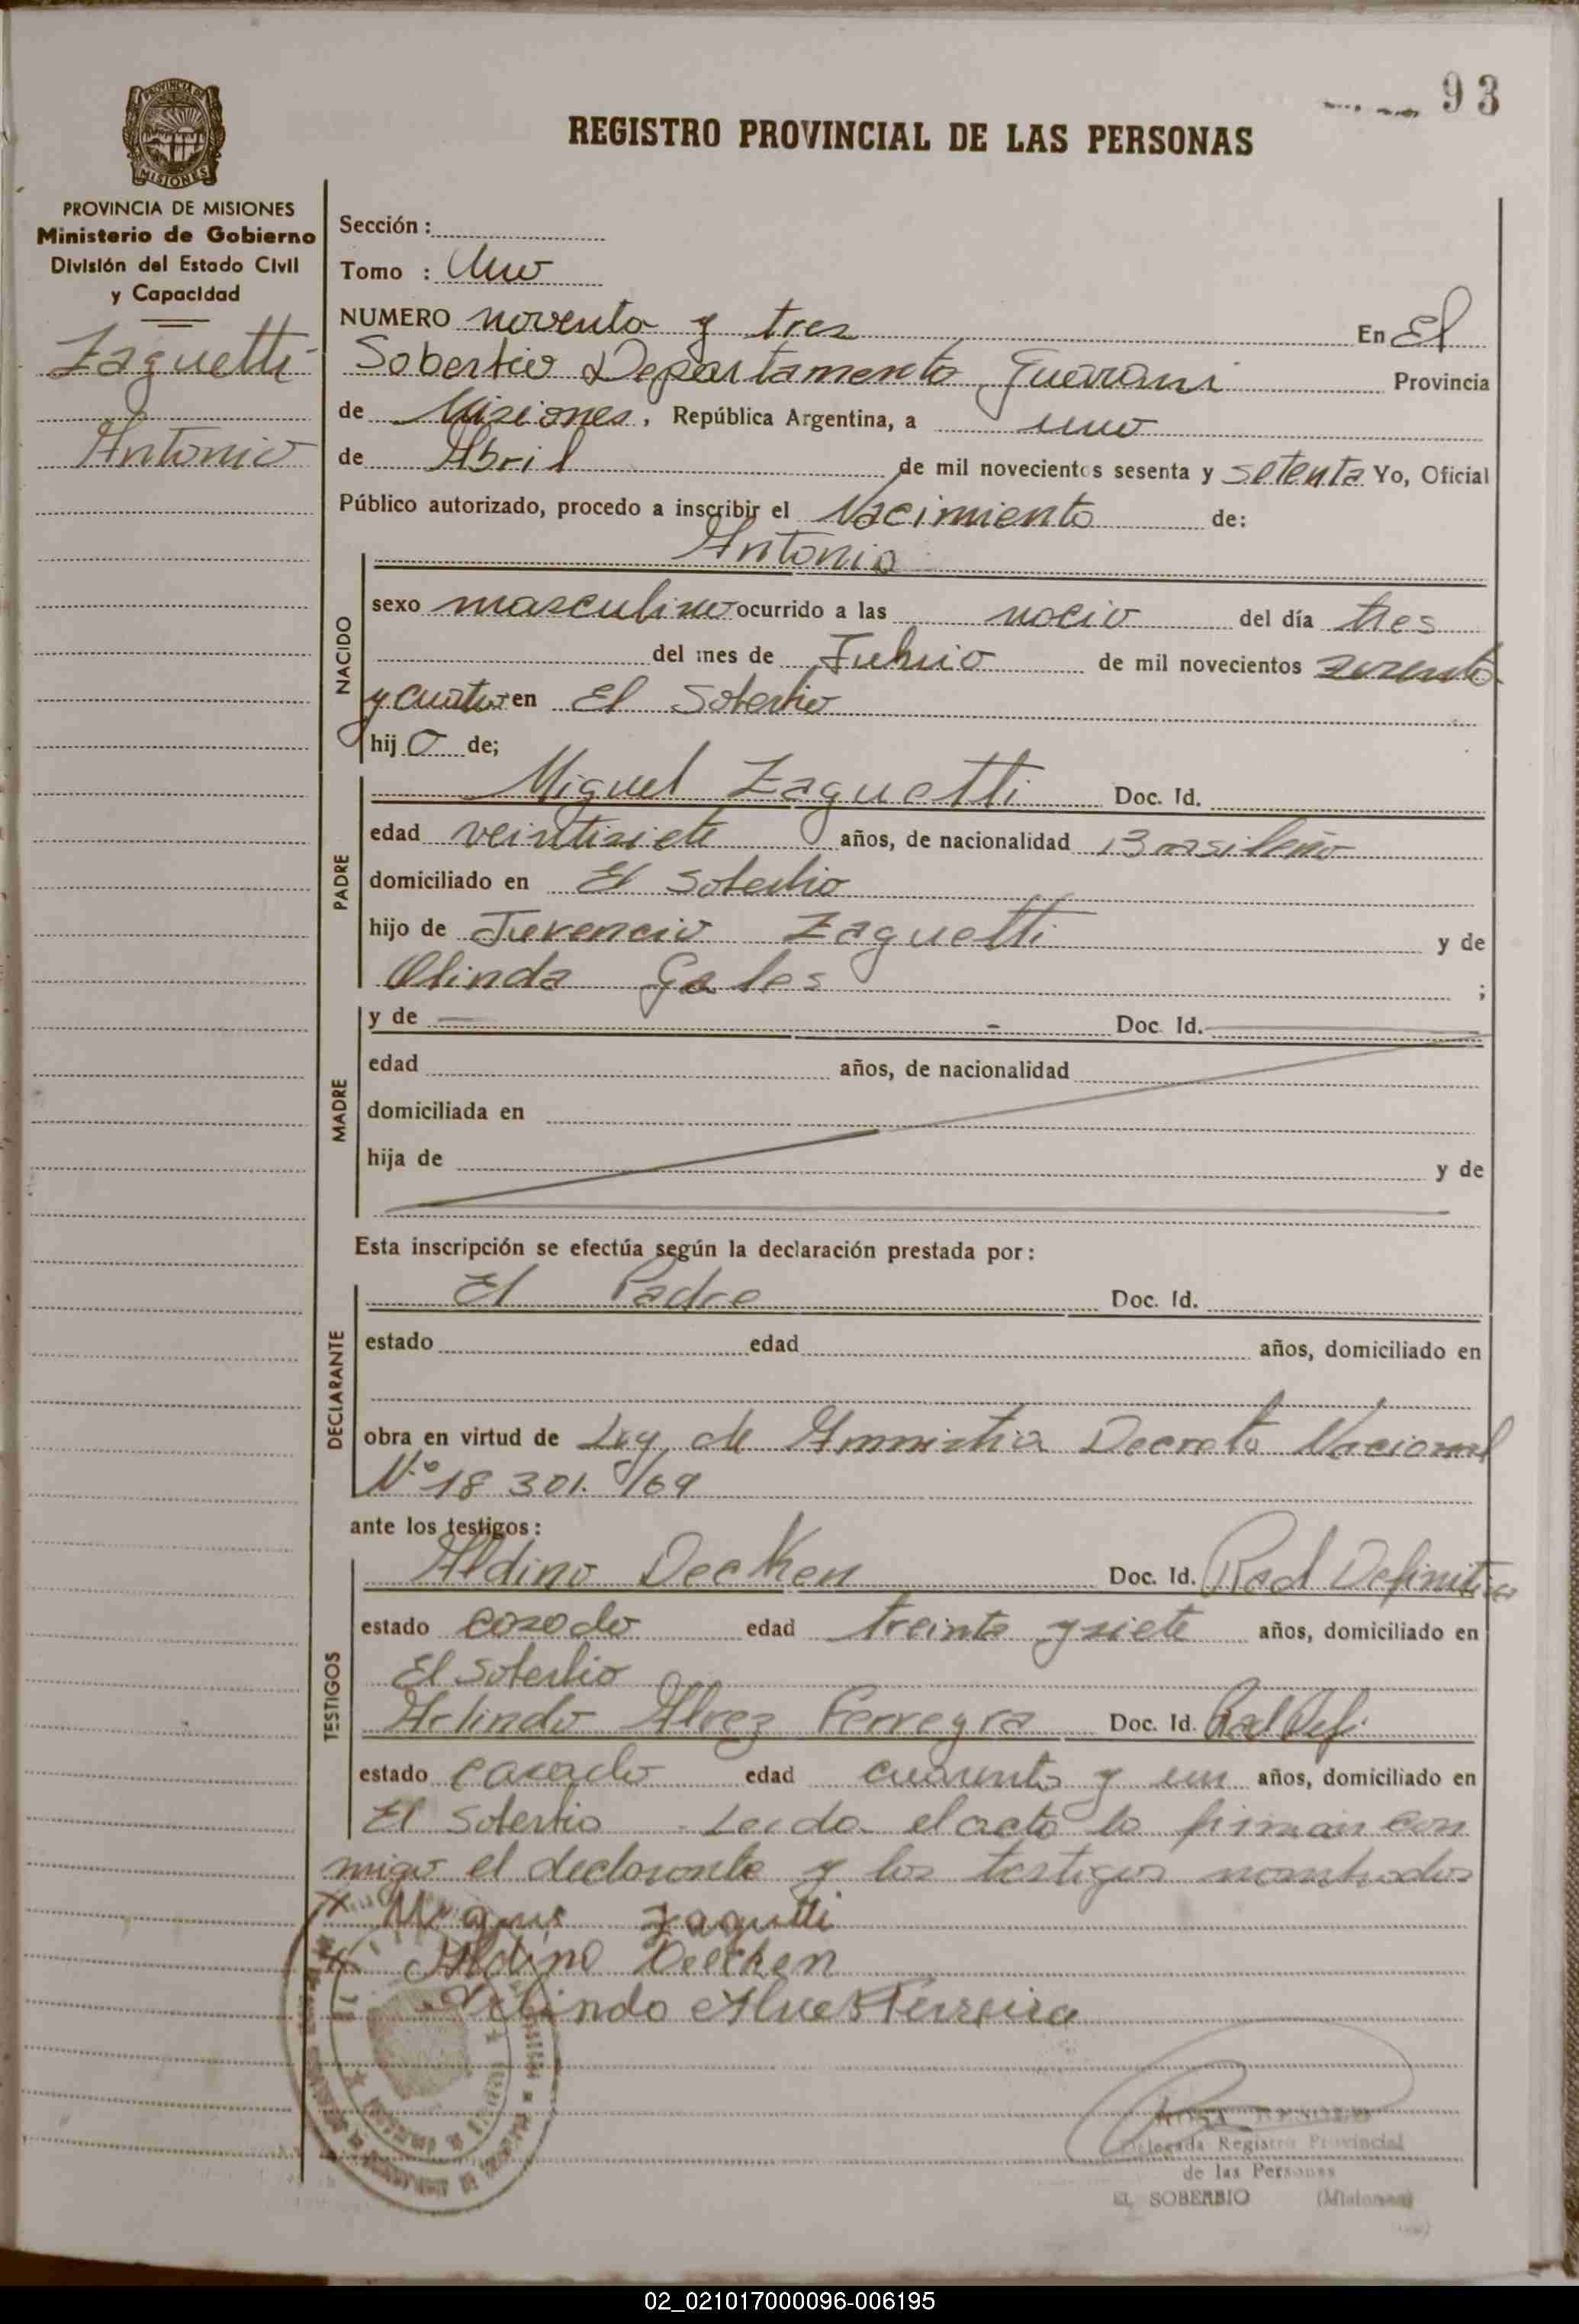 93
REGISTRO PROVINCIAL DE LAS PERSONAS
PROVINCIA DE MISIONES
Ministerio de Gobierno
División del Estado Civil
y Capacidad
Zaguetti
Antonio
Sección :
Tomo : Uno
NUMERO noventa y tres En El
Soberbio Departamento Guarani Provincia
de Misiones, República Argentina, a uno
de Abril de mil novecientos sesenta y setenta Yo, Oficial
Público autorizado, procedo a inscribir el Nacimiento de:
NACIDO
Antonio
sexo masculino ocurrido a las del día tres
del mes de de mil novecientos sesenta
y cuatro en El Soberbio
hijo de;
PADRE
Miguel Zaguetti Doc. Id.
edad veintisiete años, de nacionalidad Brasileño
domiciliado en El Soberbio
hijo de Juvencio Zaguetti y de
Olinda Gales ;
MADRE
y de — - Doc. Id.
edad años, de nacionalidad
domiciliada en
hija de y de
Esta inscripción se efectúa según la declaración prestada por:
DECLARANTE
El Padre Doc. Id.
estado edad años, domiciliado en
obra en virtud de Ley de Amnistia Decreto Nacional
Nº 18 301./69
ante los testigos:
TESTIGOS
Aldino Decken Doc. Id. Rad Definitiva
estado casado edad treinta y siete años, domiciliado en
El Soberbio
Arlindo Alvez Ferreyra Doc. Id. Rad Defi.
estado casado edad cuarenta y un años, domiciliado en
El Soberbio - Leida el acta la firman con
migo el declarante y los testigos nombrados
x Zaguetti
x Aldino Decken
Arlindo Alves Ferreira
ROSA
Delegada Registro Provincial
de las Personas
EL SOBERBIO (Misiones)
02_021017000096-006195